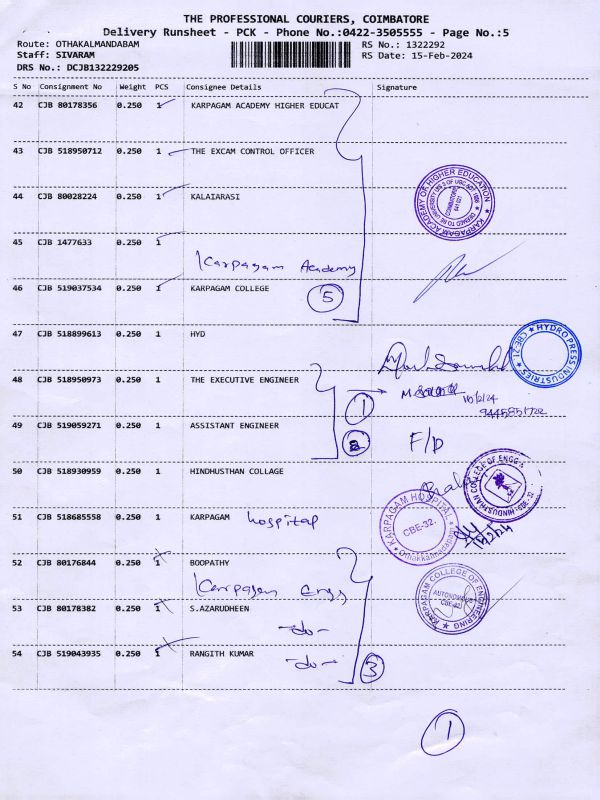 THE PROFESSIONAL COURIERS, COIMBATORE
Delivery Runsheet - PCK - Phone No.:0422-3505555 - Page No.:5
Route: OTHAKALMANDABAM RS No.: 1322292
Staff: SIVARAM RS Date: 15-Feb-2024
DRS No.: DCJB132229205
S No Consignment No Weight PCS Consignee Details Signature
42 CJB 80178356 0.250 1 KARPAGAM ACADEMY HIGHER EDUCAT
43 CJB 518950712 0.250 1 THE EXCAM CONTROL OFFICER
44 CJB 80028224 0.250 1 KALAIARASI
KARPAGAM ACADEMY OF HIGHER EDUCATION
45 CJB 1477633 0.250 1
Karpagam Academy
46 CJB 519037534 0.250 1 KARPAGAM COLLEGE
5
47 CJB 518899613 0.250 1 HYD
HYDRO PRESS INDUSTRIES CBE-21
48 CJB 518950973 0.250 1 THE EXECUTIVE ENGINEER
1
49 CJB 519059271 0.250 1 ASSISTANT ENGINEER
F/D
50 CJB 518930959 0.250 1 HINDHUSTHAN COLLAGE
HINDUSTHAN COLLEGE OF ENGG
51 CJB 518685558 0.250 1 KARPAGAM hospital
KARPAGAM HOSPITAL CBE-32. Othakkalmandapam
52 CJB 80176844 0.250 1 BOOPATHY
Karpagam Engg
KARPAGAM COLLEGE OF ENGINEERING AUTONOMOUS CBE-32
53 CJB 80178382 0.250 1 S.AZARUDHEEN
-do-
54 CJB 519043935 0.250 1 RANGITH KUMAR
-do- 3
1